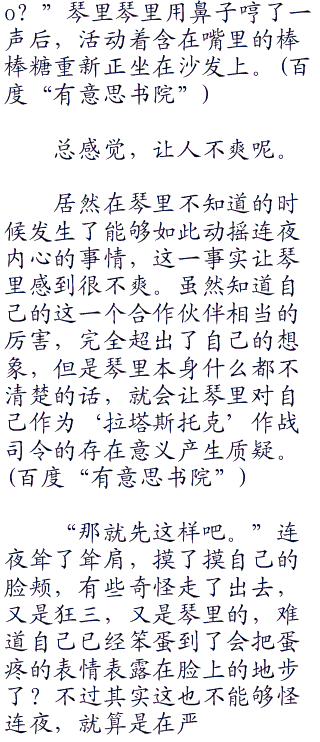 o？”琴里琴里用鼻子哼了一
声后，活动着含在嘴里的棒
棒糖重新正坐在沙发上。(百
度“有意思书院”)
总感觉，让人不爽呢。
居然在琴里不知道的时
候发生了能够如此动摇连夜
内心的事情，这一事实让琴
里感到很不爽。虽然知道自
己的这一个合作伙伴相当的
厉害，完全超出了自己的想
象，但是琴里本身什么都不
清楚的话，就会让琴里对自
己作为‘拉塔斯托克’作战
司令的存在意义产生质疑。
(百度“有意思书院”)
“那就先这样吧。”连
夜耸了耸肩，摸了摸自己的
脸颊，有些奇怪走了出去，
又是狂三，又是琴里的，难
道自己已经笨蛋到了会把蛋
疼的表情表露在脸上的地步
了？不过其实这也不能够怪
连夜，就算是在严